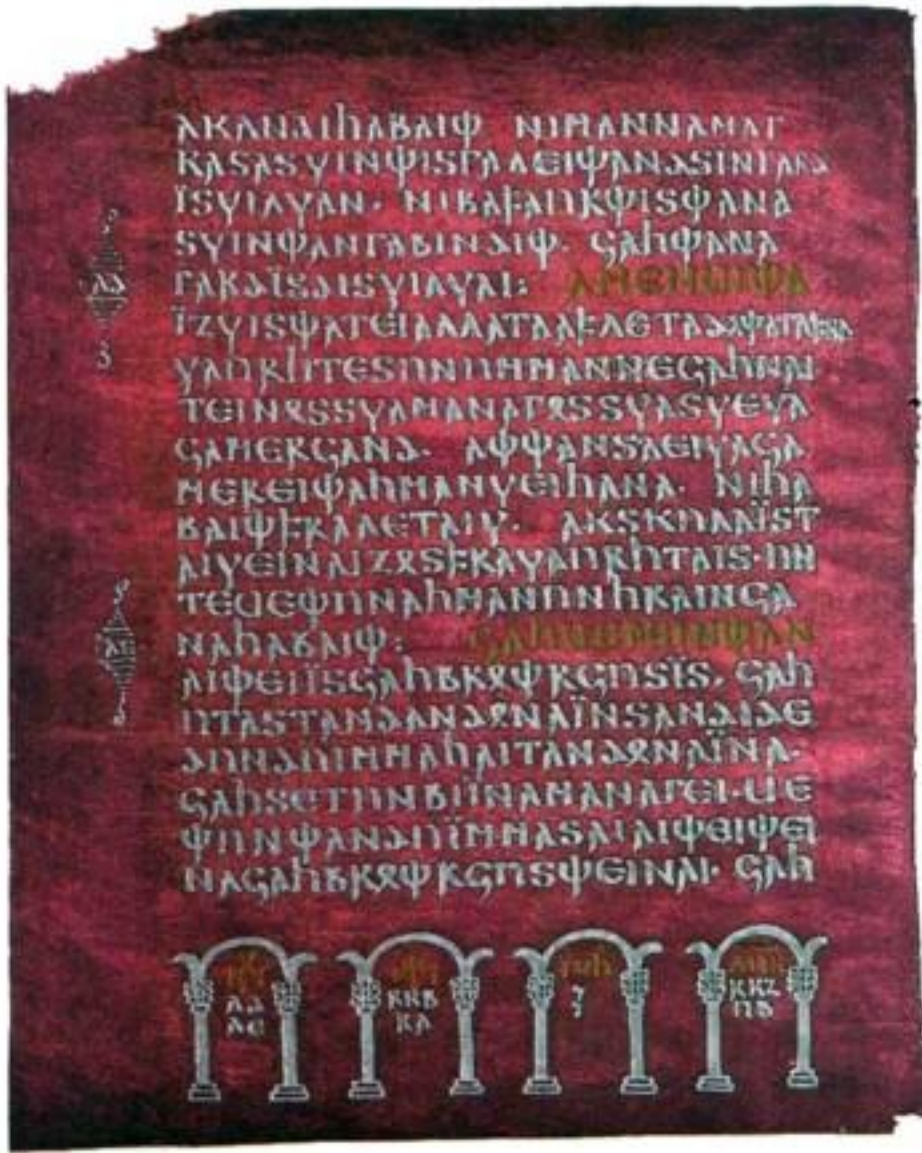 𐌰𐌺𐌰𐌽𐌳𐌹𐌷𐌰𐌱𐌰𐌹𐌸 𐌽𐌹𐌼𐌰𐌽𐌽𐌰𐌼𐌰𐌲
𐌺𐌰𐍃𐌰𐍃𐍅𐌹𐌽𐌸𐌹𐍃𐌲𐌰𐌻𐌴𐌹𐌸𐌰𐌽𐌳𐍃𐌹𐌽𐌲𐌰𐍂𐌳
𐌹̈𐍃𐍅𐌹𐌻𐍅𐌰𐌽· 𐌽𐌹𐌱𐌰𐍆𐌰𐌿𐍂𐌸𐌹𐍃𐌸𐌰𐌽𐌰
𐍃𐍅𐌹𐌽𐌸𐌰𐌽𐌲𐌰𐌱𐌹𐌽𐌳𐌹𐌸· 𐌾𐌰𐌷𐌸𐌰𐌽𐌰
𐌲𐌰𐍂𐌳𐌹̈𐍃𐌳𐌹𐍃𐍅𐌹𐌻𐍅𐌰𐌹: 𐌰𐌼𐌴𐌽𐌵𐌹𐌸𐌰
𐌹̈𐌶𐍅𐌹𐍃𐌸𐌰𐍄𐌴𐌹𐌰𐌻𐌻𐌰𐍄𐌰𐌰𐍆𐌻𐌴𐍄𐌰𐌳𐌰𐌸𐌰𐍄𐌰𐍆𐍂𐌰
𐍅𐌰𐌿𐍂𐌷𐍄𐌴𐍃𐌿𐌽𐌿𐌼𐌼𐌰𐌽𐌽𐌴𐌾𐌰𐌷𐌽𐌰𐌹
𐍄𐌴𐌹𐌽𐍉𐍃𐍃𐍅𐌰𐌼𐌰𐌽𐌰𐌲𐍉𐍃𐍃𐍅𐌰𐍃𐍅𐌴𐍅𐌰
𐌾𐌰𐌼𐌴𐍂𐌾𐌰𐌽𐌳· 𐌰𐌸𐌸𐌰𐌽𐍃𐌰𐌴𐌹𐍅𐌰𐌾𐌰
𐌼𐌴𐍂𐌴𐌹𐌸𐌰𐌷𐌼𐌰𐌽𐍅𐌴𐌹𐌷𐌰𐌽𐌰· 𐌽𐌹𐌷𐌰
𐌱𐌰𐌹𐌸𐍆𐍂𐌰𐌻𐌴𐍄𐌰𐌹𐍅· 𐌰𐌺𐍃𐌺𐌿𐌻𐌰𐌹̈𐍃𐍄
𐌰𐌹𐍅𐌴𐌹𐌽𐌰𐌹𐌶𐍉𐍃𐍆𐍂𐌰𐍅𐌰𐌿𐍂𐌷𐍄𐌰𐌹𐍃·𐌿𐌽
𐍄𐌴𐌵𐌴𐌸𐌿𐌽𐌰𐌷𐌼𐌰𐌽𐌿𐌽𐌷𐍂𐌰𐌹𐌽𐌾𐌰
𐌽𐌰𐌷𐌰𐌱𐌰𐌹𐌸: 𐌾𐌰𐌷𐌵𐌴𐌼𐌿𐌽𐌸𐌰𐌽
𐌰𐌹𐌸𐌴𐌹𐌹̈𐍃𐌾𐌰𐌷𐌱𐍂𐍉𐌸𐍂𐌾𐌿𐍃𐌹̈𐍃· 𐌾𐌰𐌷
𐌿𐍄𐌰𐍃𐍄𐌰𐌽𐌳𐌰𐌽𐌳𐍉𐌽𐌰𐌹̈𐌽𐍃𐌰𐌽𐌳𐌹𐌳𐌴
𐌳𐌿𐌽𐌳𐌿𐌹̈𐌼𐌼𐌰𐌷𐌰𐌹𐍄𐌰𐌽𐌳𐍉𐌽𐌰𐌹̈𐌽𐌰·
𐌾𐌰𐌷𐍃𐌴𐍄𐌿𐌽𐌱𐌹𐌹̈𐌽𐌰𐌼𐌰𐌽𐌰𐌲𐌴𐌹·𐌵𐌴
𐌸𐌿𐌽𐌸𐌰𐌽𐌳𐌿𐌹̈𐌼𐌼𐌰𐍃𐌰𐌹𐌰𐌹𐌸𐌴𐌹𐌸𐌴𐌹
𐌽𐌰𐌾𐌰𐌷𐌱𐍂𐍉𐌸𐍂𐌾𐌿𐍃𐌸𐌴𐌹𐌽𐌰𐌹· 𐌾𐌰𐌷
𐌻𐌳
𐌻𐌴